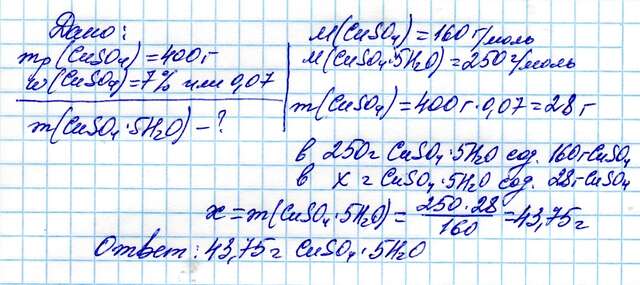 Дано:
mр(CuSO₄)=400г
w(CuSO₄)=7% или 0,07
m(CuSO₄·5H₂O)–?
M(CuSO₄)=160г/моль
M(CuSO₄·5H₂O)=250г/моль
m(CuSO₄)=400г·0,07=28г
в 250г CuSO₄·5H₂O сод. 160гCuSO₄
в x г CuSO₄·5H₂O сод. 28гCuSO₄
x=m(CuSO₄·5H₂O)=250·28/160=43,75г
Ответ: 43,75г CuSO₄·5H₂O